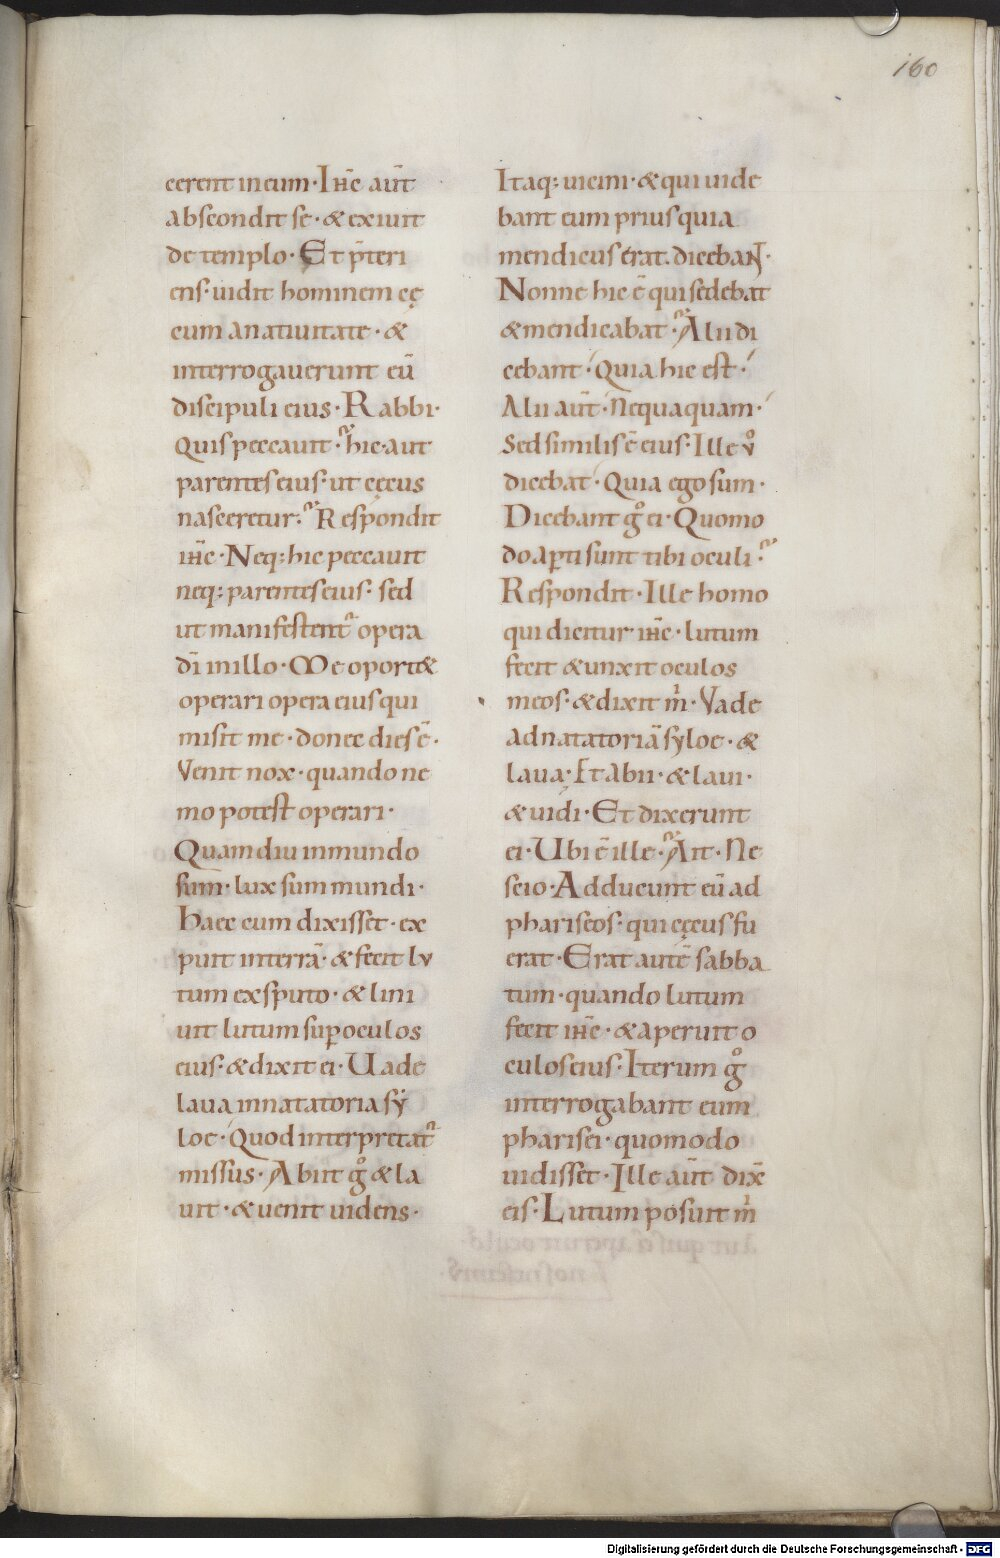 160
cerent in eum · Ihc̄ aūt
abscondit se · & exiuit
de templo · Et p̄teri
ens · uidit hominem cę
cum a natiuitate · &
interrogauerunt eū
discipuli eius · Rabbi ·
Quis peccauit · hic · aut
parentes eius · ut cęcus
nasceretur · Respondit
ihc̄ · Neq; hic peccauit
neq; parentes eius · sed
ut manifestent᷑ opera
dī in illo · Me oport&
operari opera eius qui
misit me · donec dies ē ·
Venit nox · quando ne
mo potest operari ·
Quamdiu in mundo
sum · lux sum mundi ·
Haec cum dixisset · ex
puit in terrā · & fecit lv
tum ex sputo · & lini
uit lutum suꝑ oculos
eius · & dixit ei · Uade
laua in natatoria sy
loe · Quod interpretat᷑
missus · Abiit gͦ & la
uit · & uenit uidens ·
Itaq; uicini · & qui uide
bant eum prius quia
mendicus erat. dicebaNT ·
Nonne hic ē qui sedebat
& mendicabat · Alii di
cebant · Quia hic est ·
Alii aūt · Nequaquam ·
Sed similis ē eius · Ille vͦ
dicebat · Quia ego sum ·
Dicebant gͦ ei · Quomo
do aꝑti sunt tibi oculi ·
Respondit · Ille homo
qui dicitur ihc̄ · lutum
fecit & unxit oculos
meos · & dixit mⁱ · Vade
ad natatoriā syloe · &
laua · Et abii · & laui ·
& uidi · Et dixerunt
ei · Ubi ē ille · Ait · Ne
scio · Adducunt eū ad
phariseos · qui cęcus fu
erat · Erat autē sabba
tum · quando lutum
fecit ihc̄ · & aperuit o
culos eius · Iterum gͦ
interrogabant eum
pharisei · quomodo
uidisset · Ille aūt dix̄
eis · Lutum posuit mⁱ
Digitalisierung gefördert durch die Deutsche Forschungsgemeinschaft - DFG